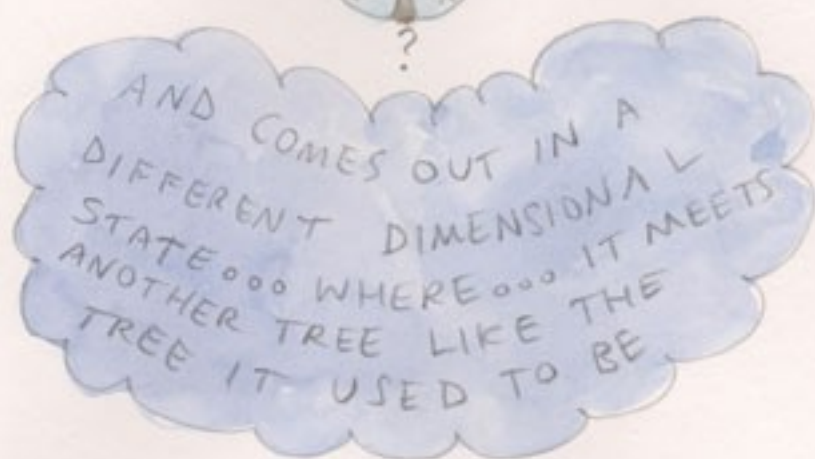 ?
AND COMES OUT IN A
DIFFERENT DIMENSIONAL
STATE... WHERE... IT MEETS
ANOTHER TREE LIKE THE
TREE IT USED TO BE